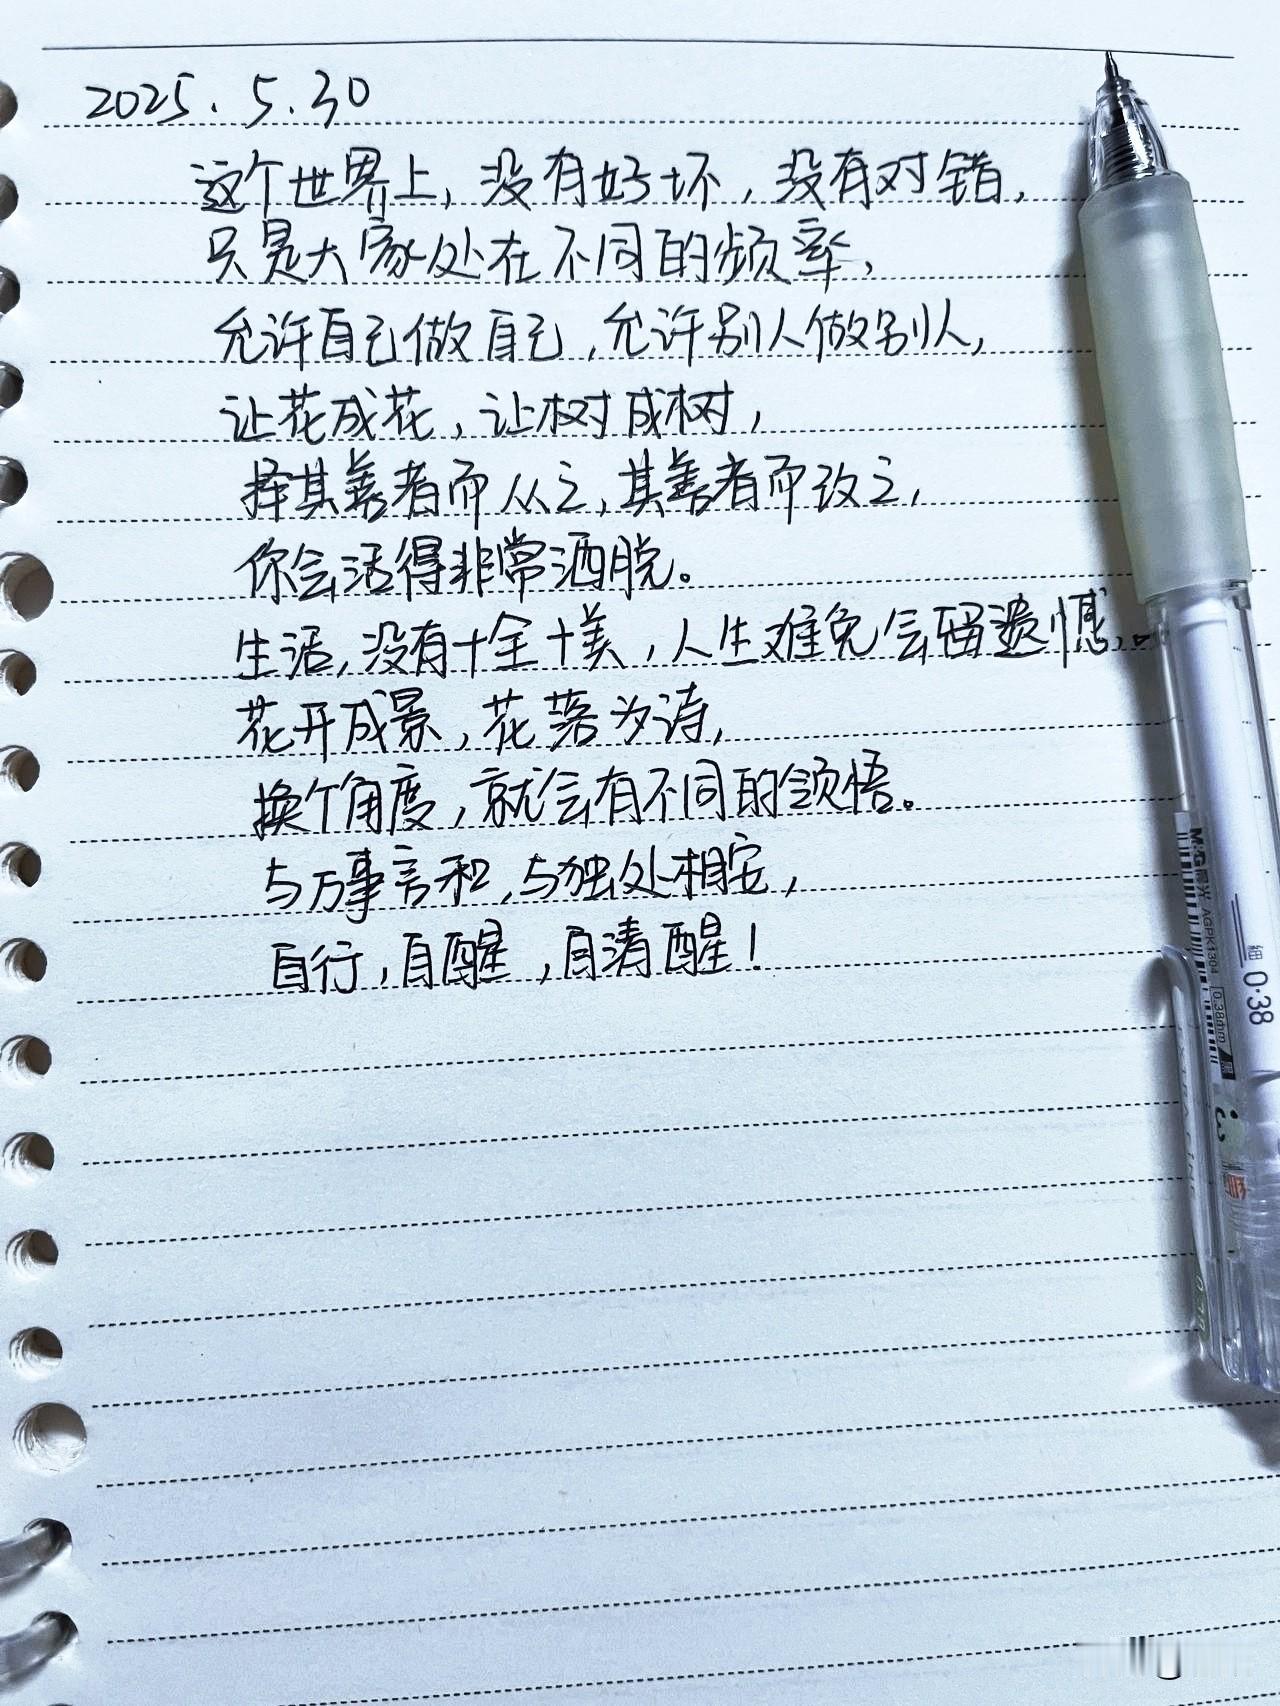 2025.5.30
这个世界上，没有好坏，没有对错，
只是大家处在不同的频率，
允许自己做自己，允许别人做别人，
让花成花，让树成树，
择其善者而从之，其善者而改之，
你会活得非常洒脱。
生活，没有十全十美，人生难免会留遗憾，。
花开成景，花落为诗，
换个角度，就会有不同的领悟。
与万事言和，与独处相安，
自行，自醒，自清醒！
M&G晨光 AGPK1304 0.38mm 黑
细 0.38